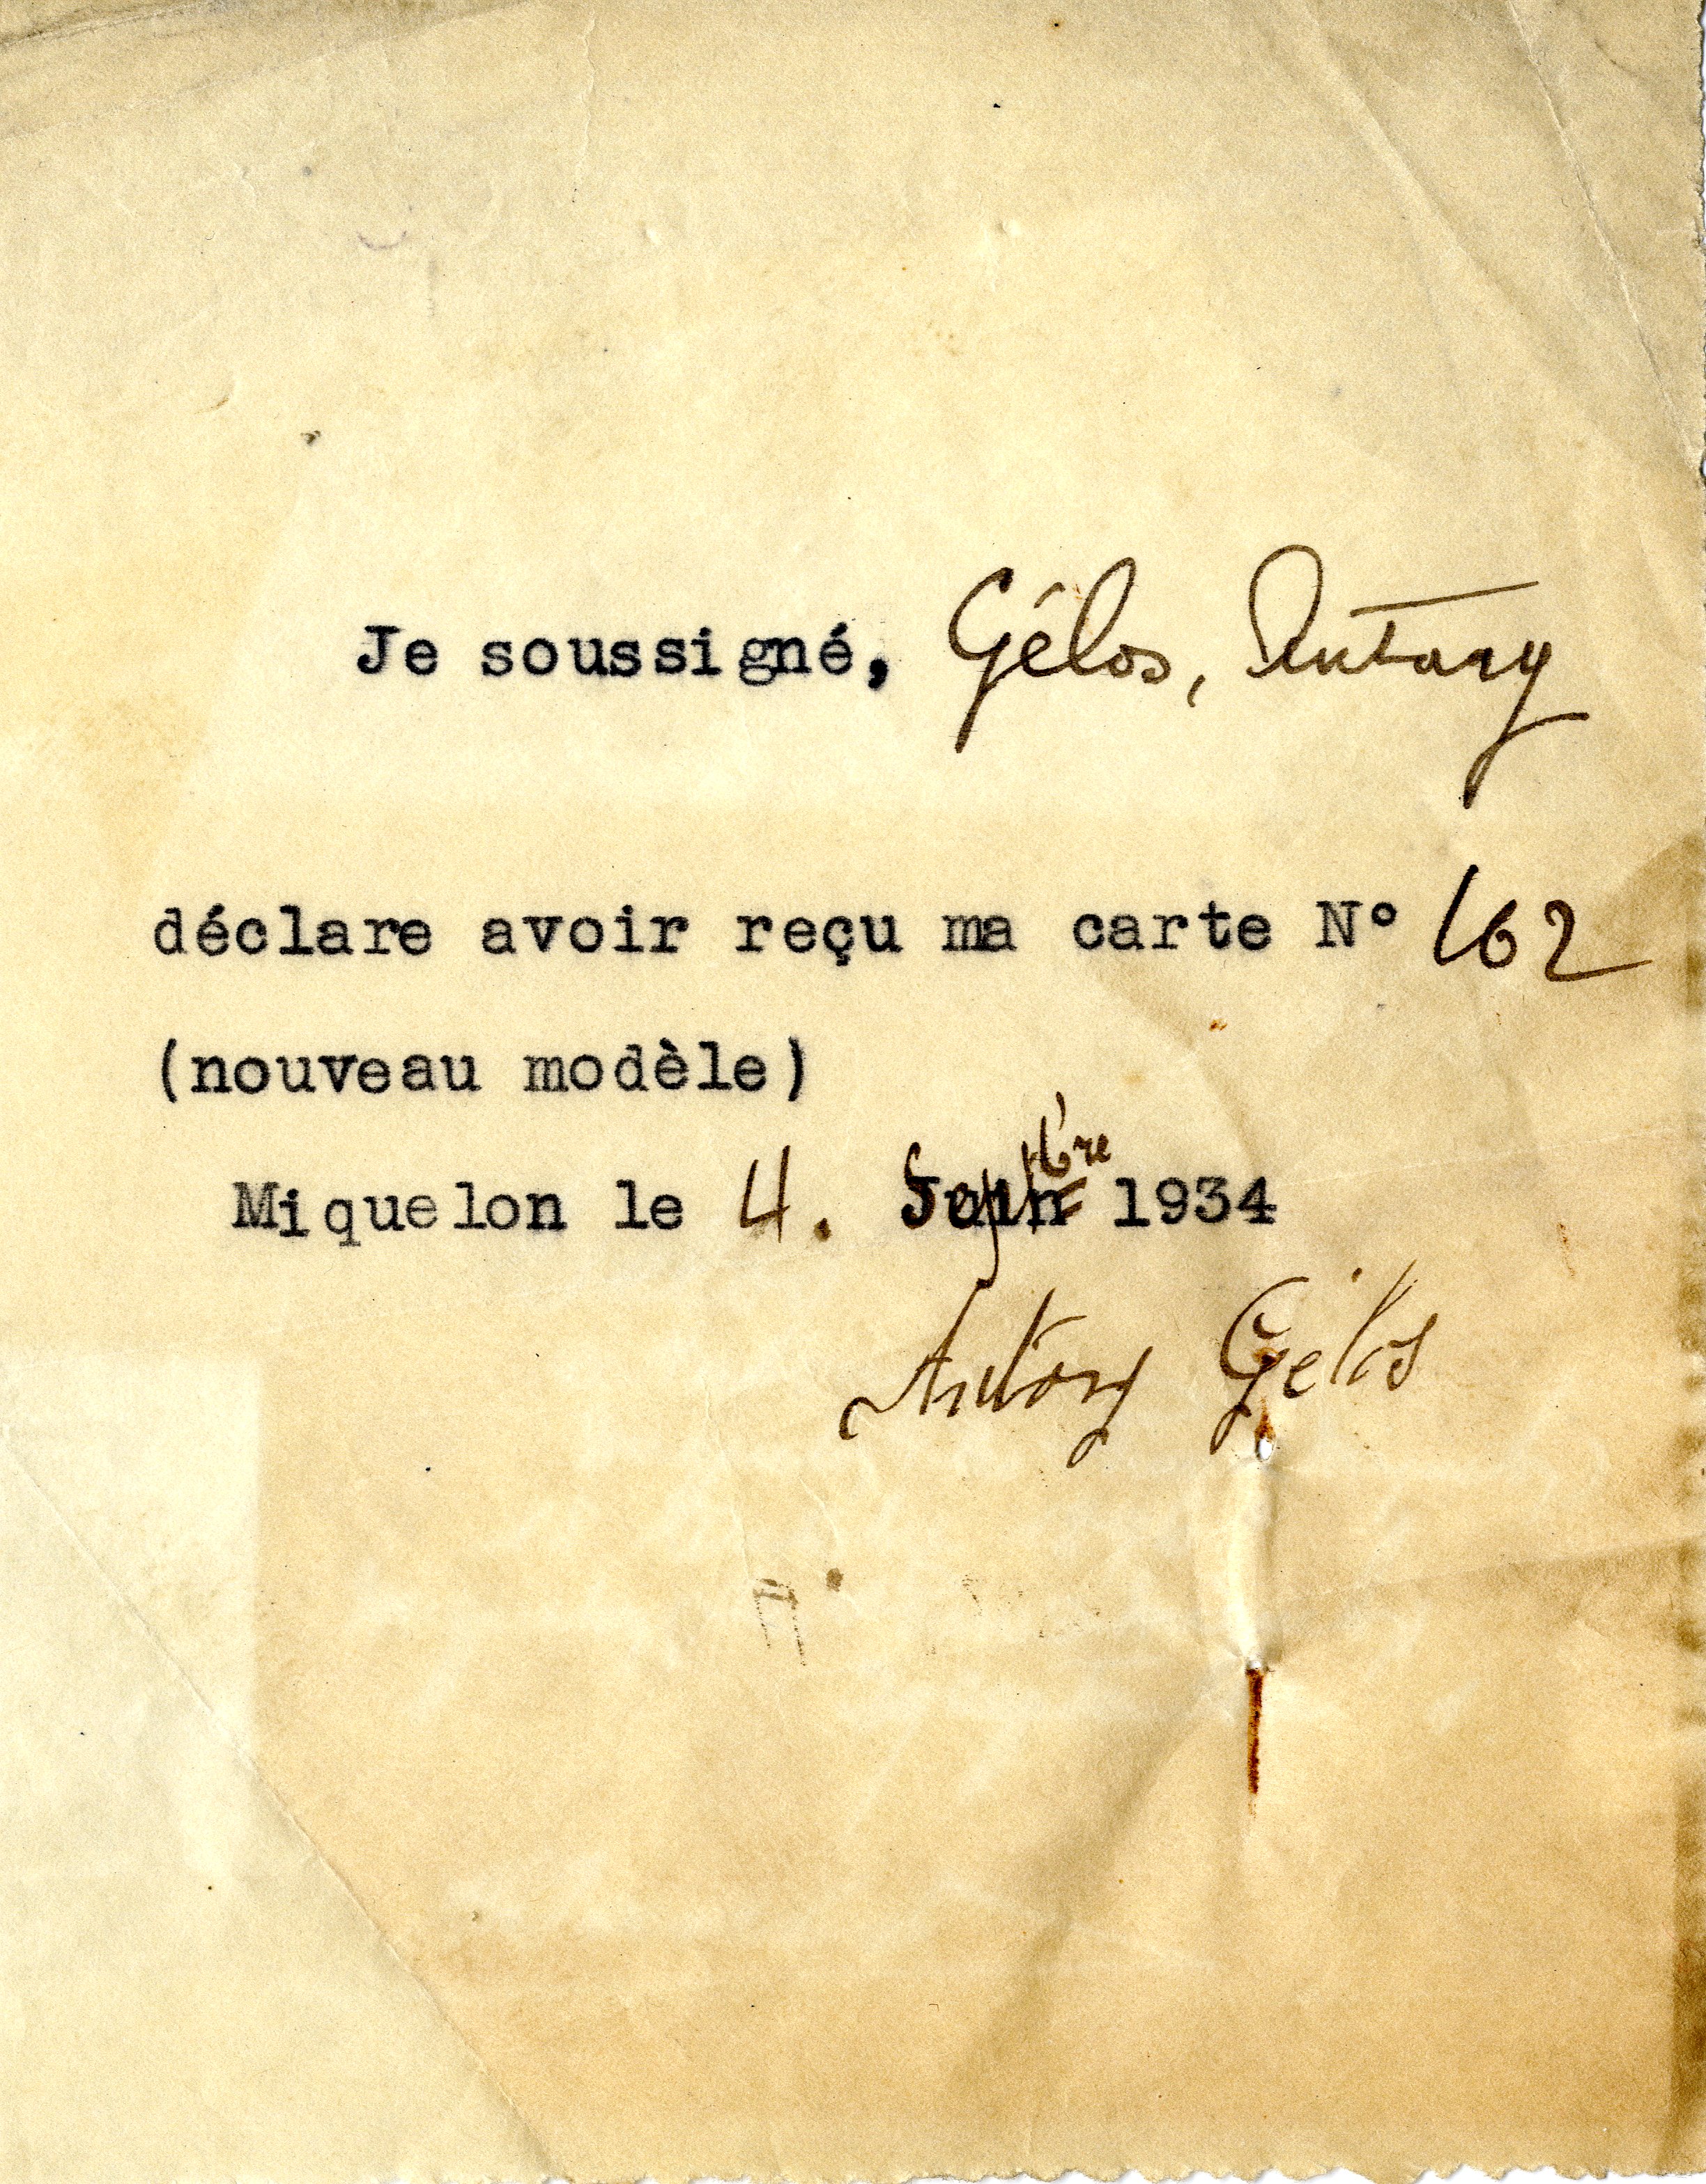 Je soussigné, Gélos, Antony
déclare avoir reçu ma carte N° 162
(nouveau modèle)
Miquelon le 4. Septbre 1934
Antony Gélos